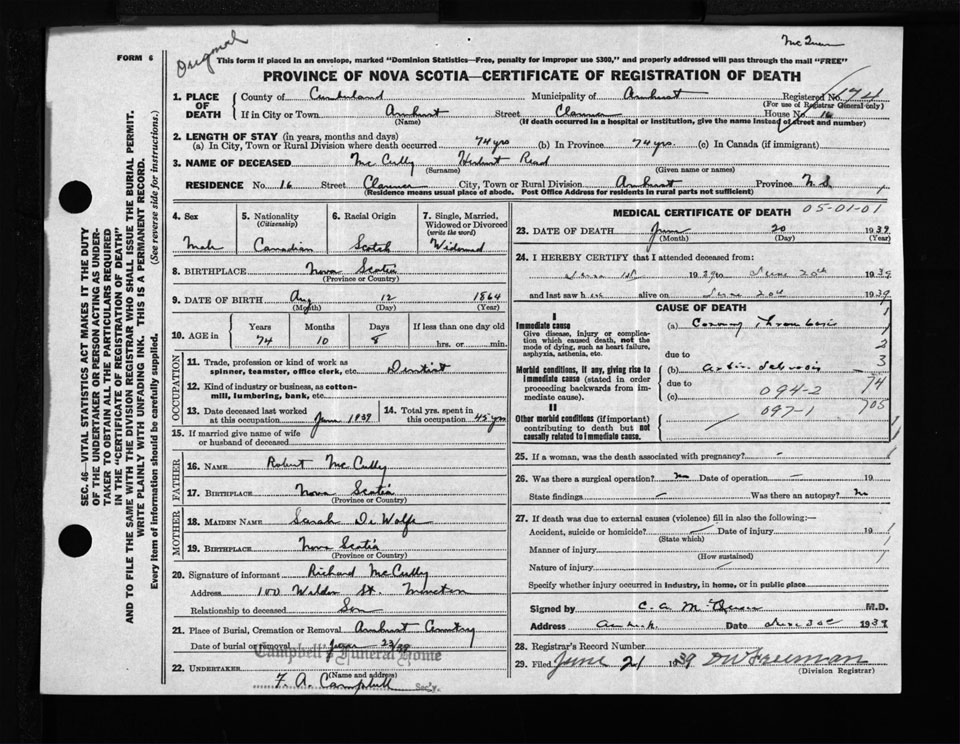 Original
McQuan
FORM 6
This form if placed in an envelope, marked "Dominion Statistics—Free, penalty for improper use $300," and properly addressed will pass through the mail "FREE"
PROVINCE OF NOVA SCOTIA—CERTIFICATE OF REGISTRATION OF DEATH
1. PLACE OF DEATH County of Cumberland Municipality of Amherst Registered No. 174
(For use of Registrar General only)
If in City or Town Amherst Street Clarence House No. 16
(Name) (If death occurred in a hospital or institution, give the name instead of street and number)
2. LENGTH OF STAY (in years, months and days)
(a) In City, Town or Rural Division where death occurred 74 yrs (b) In Province 74 yrs. (c) In Canada (if immigrant)
3. NAME OF DECEASED McCully Herbert Read
(Surname) (Given name or names)
RESIDENCE No. 16 Street Clarence City, Town or Rural Division Amherst Province N.S.
(Residence means usual place of abode. Post Office Address for residents in rural parts not sufficient)
4. Sex 5. Nationality (Citizenship) 6. Racial Origin 7. Single, Married, Widowed or Divorced (write the word)
Male Canadian Scotch Widowed
8. BIRTHPLACE Nova Scotia
(Province or Country)
9. DATE OF BIRTH Aug 12 1864
(Month) (Day) (Year)
10. AGE in Years Months Days If less than one day old
74 10 8 hrs. or min.
OCCUPATION
11. Trade, profession or kind of work as spinner, teamster, office clerk, etc. Dentist
12. Kind of industry or business, as cotton-mill, lumbering, bank, etc.
13. Date deceased last worked at this occupation June 1939 14. Total yrs. spent in this occupation 45 yrs
15. If married give name of wife or husband of deceased
FATHER
16. NAME Robert McCully
17. BIRTHPLACE Nova Scotia
(Province or Country)
MOTHER
18. MAIDEN NAME Sarah DeWolfe
19. BIRTHPLACE Nova Scotia
(Province or Country)
20. Signature of informant Richard McCully
Address 100 Weldon St. Moncton
Relationship to deceased Son
21. Place of Burial, Cremation or Removal Amherst Cemetery
Date of burial or removal June 23/39
Campbell's Funeral Home
22. UNDERTAKER
(Name and address)
F. A. Campbell Sec'y.
MEDICAL CERTIFICATE OF DEATH 05-01-01
23. DATE OF DEATH June 20 1939
(Month) (Day) (Year)
24. I HEREBY CERTIFY that I attended deceased from:
June 1st 1939 to June 20th 1939
and last saw him alive on June 20th 1939
CAUSE OF DEATH
I
Immediate cause
Give disease, injury or complication which caused death, not the mode of dying, such as heart failure, asphyxia, asthenia, etc.
(a) Coronary Thrombosis
due to
Morbid conditions, if any, giving rise to immediate cause (stated in order proceeding backwards from immediate cause).
(b)
due to
(c) 094-2
II
Other morbid conditions (if important) contributing to death but not causally related to immediate cause.
097-1
1
2
3
74
705
25. If a woman, was the death associated with pregnancy? -
26. Was there a surgical operation? no Date of operation - 19
State findings - Was there an autopsy? no
27. If death was due to external causes (violence) fill in also the following:—
Accident, suicide or homicide? Date of injury 19
(State which)
Manner of injury
(How sustained)
Nature of injury
Specify whether injury occurred in industry, in home, or in public place
Signed by C. A. McQueen M.D.
Address Date 1939
28. Registrar's Record Number
29. Filed June 21 1939 DW Freeman
(Division Registrar)
SEC. 46—VITAL STATISTICS ACT MAKES IT THE DUTY
OF THE UNDERTAKER OR PERSON ACTING AS UNDER-
TAKER TO OBTAIN ALL THE PARTICULARS REQUIRED
IN THE "CERTIFICATE OF REGISTRATION OF DEATH"
AND TO FILE THE SAME WITH THE DIVISION REGISTRAR WHO SHALL ISSUE THE BURIAL PERMIT.
WRITE PLAINLY WITH UNFADING INK. THIS IS A PERMANENT RECORD.
Every item of information should be carefully supplied. (See reverse side for instructions.)